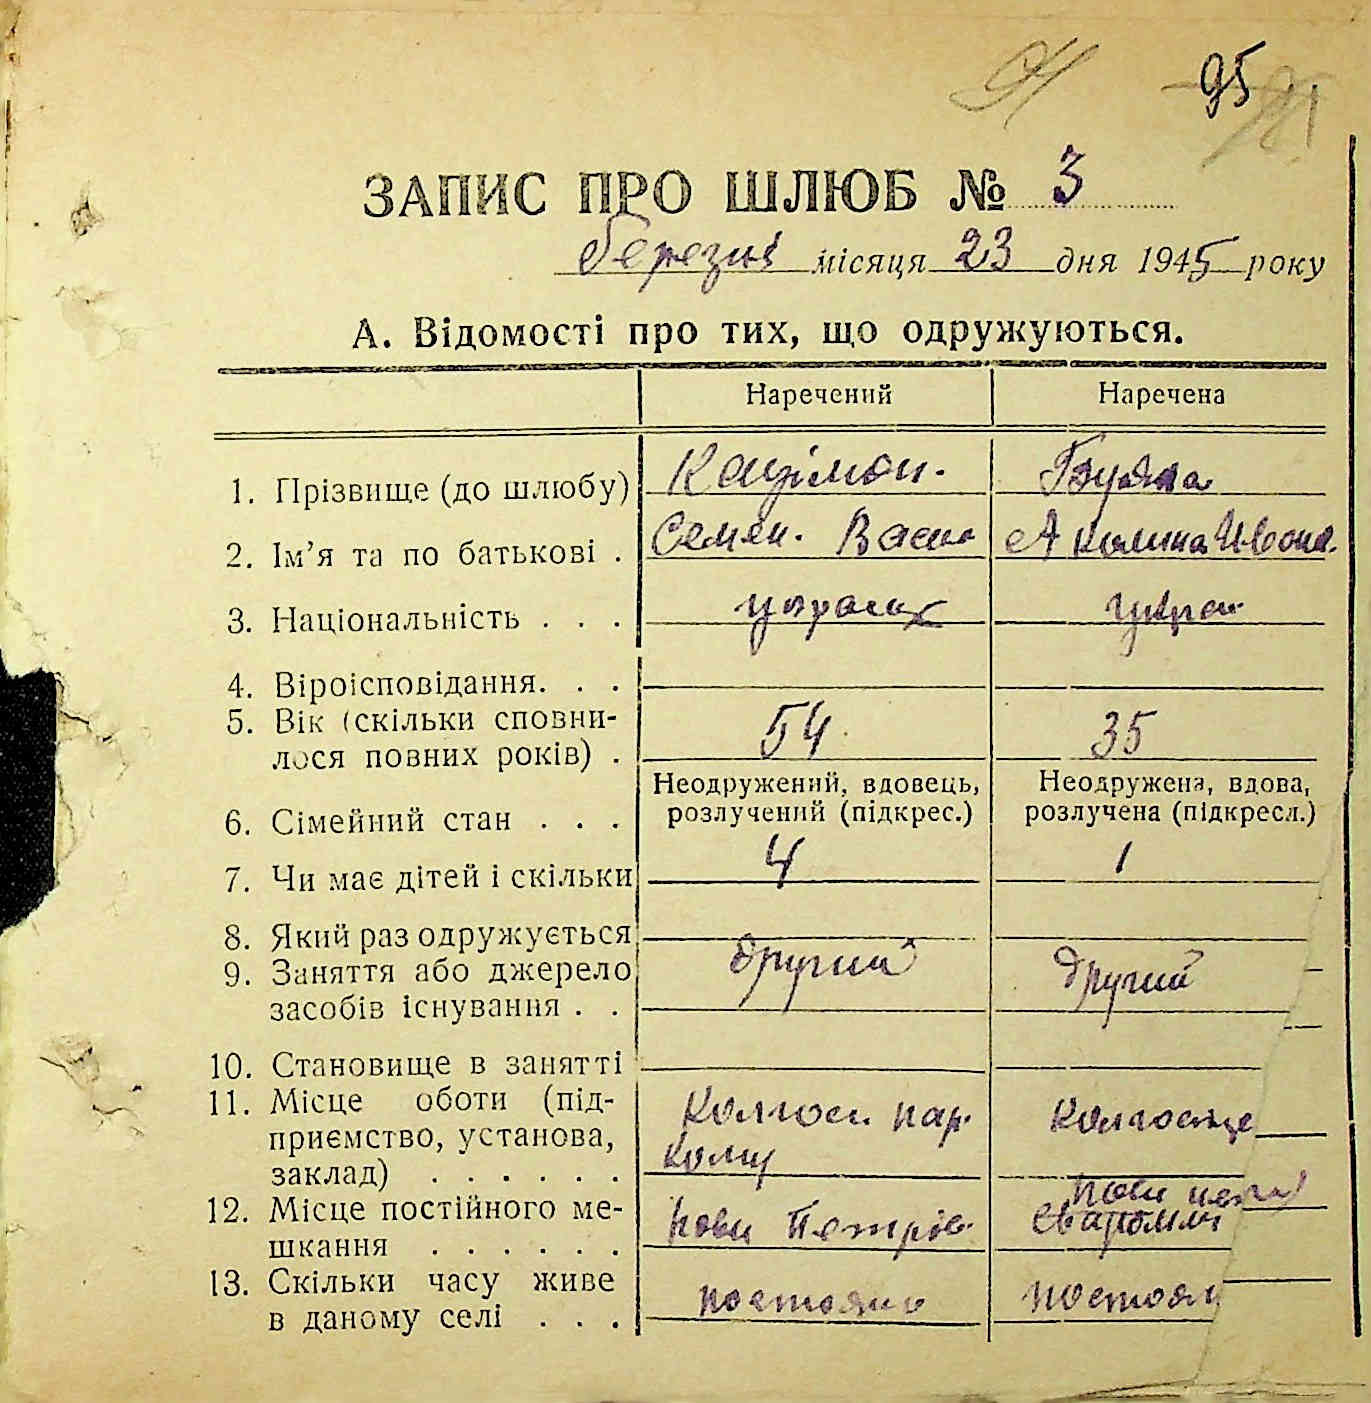 95
ЗАПИС ПРО ШЛЮБ № 3
березня місяця 23 дня 1945 року
А. Відомості про тих, що одружуються.
Наречений Наречена
1. Прізвище (до шлюбу)
2. Ім'я та по батькові . Семен. Васи Акилина Ивона.
3. Національність . . . украинец укра
4. Віроісповідання. . .
5. Вік (скільки сповни-
лося повних років) . 54 35
Неодружений, вдовець, Неодружена, вдова,
6. Сімейний стан . . . розлучений (підкрес.) розлучена (підкресл.)
7. Чи має дітей і скільки 4 1
8. Який раз одружується
9. Заняття або джерело другий другий
засобів існування . .
10. Становище в занятті
11. Місце оботи (під- Колгосп пар
приємство, установа, кому
заклад) . . . . . .
12. Місце постійного ме- Нови Петрів.
шкання . . . . . .
13. Скільки часу живе
в даному селі . . . постояно постоян